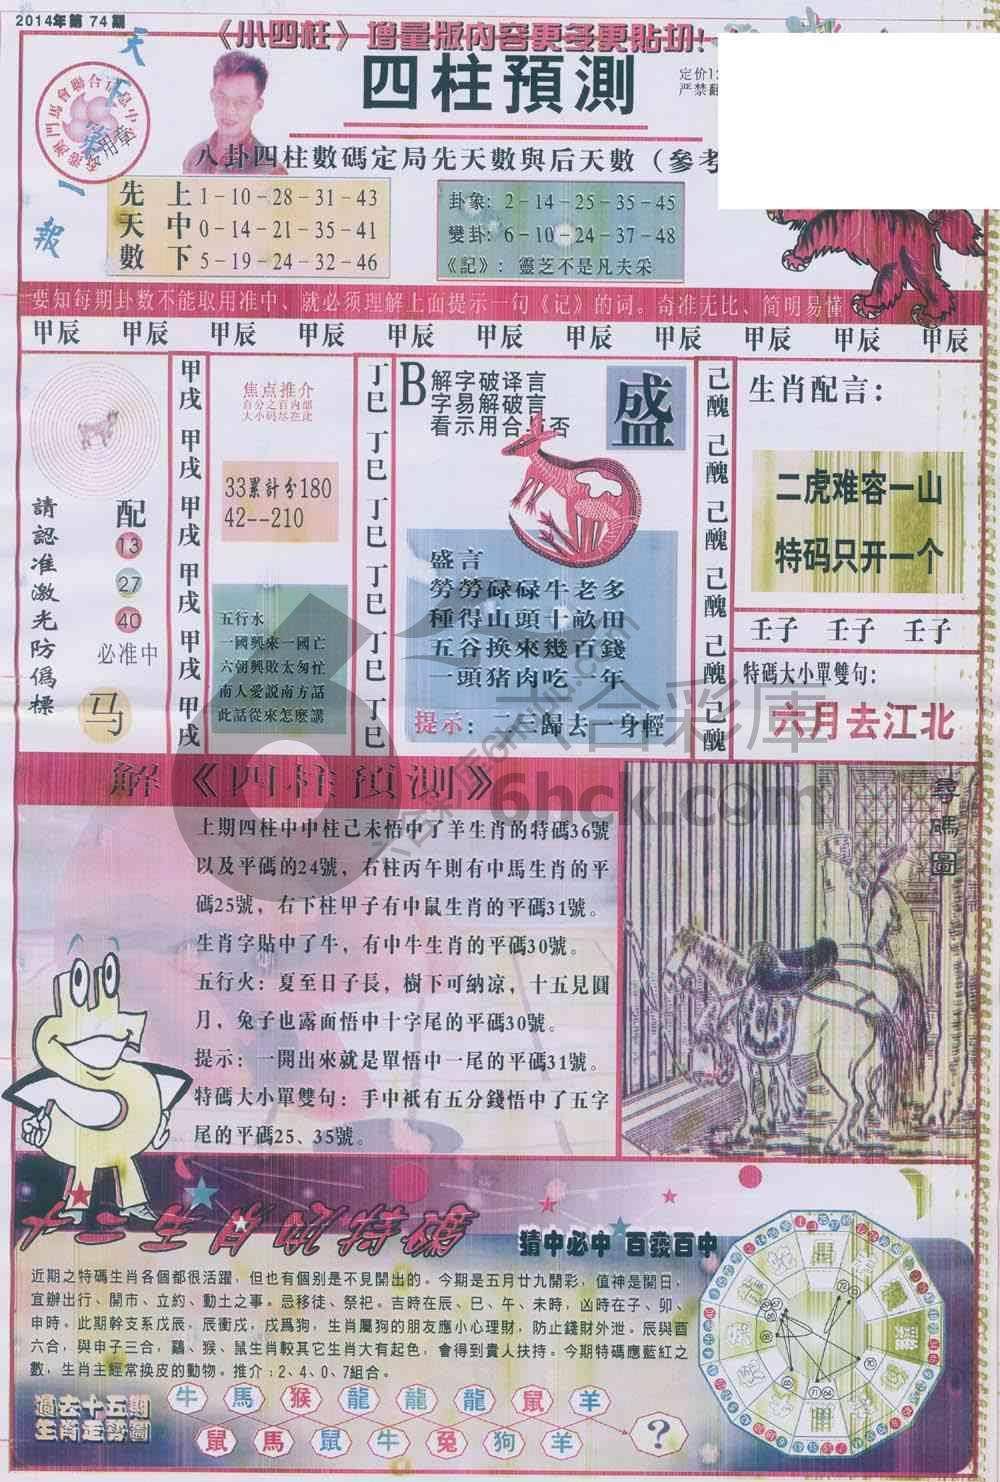 2014年第 74 期
《小四柱》增量版內容更多更貼切!
天下第一報
四柱預測
定价1
严禁翻
八卦四柱數碼定局先天數與后天數（參考
先天數
上 1－10－28－31－43
中 0－14－21－35－41
下 5－19－24－32－46
卦象: 2－14－25－35－45
變卦: 6－10－24－37－48
《記》: 靈芝不是凡夫采
要知每期卦数不能取用准中、就必须理解上面提示一句《记》的词。奇准无比、简明易懂
甲辰 甲辰 甲辰 甲辰 甲辰 甲辰 甲辰 甲辰 甲辰 甲辰 甲辰
請認准激光防僞標
配
13
27
40
必准中
马
甲戌 甲戌 甲戌 甲戌 甲戌 甲戌
焦点推介
百分之百内部
大小码尽在此
33累計分180
42--210
五行水
一國興來一國亡
六朝興敗太匆忙
南人爱説南方話
此話從來怎麽講
丁巳 丁巳 丁巳 丁巳 丁巳 丁巳
B
解字破译言
字易解破言
看示用合与否
盛
盛言
勞勞碌碌牛老多
種得山頭十畝田
五谷换來幾百錢
一頭猪肉吃一年
提示: 二三歸去一身輕
己醜 己醜 己醜 己醜 己醜 己醜
生肖配言:
二虎难容一山
特码只开一个
壬子 壬子 壬子
特碼大小單雙句:
六月去江北
六合彩库
6hck.com
解《四柱預測》
上期四柱中中柱己未悟中了羊生肖的特碼36號
以及平碼的24號，右柱丙午則有中馬生肖的平
碼25號，右下柱甲子有中鼠生肖的平碼31號。
生肖字貼中了牛，有中牛生肖的平碼30號。
五行火: 夏至日子長，樹下可納凉，十五見圓
月，兔子也露面悟中十字尾的平碼30號。
提示: 一開出來就是單悟中一尾的平碼31號。
特碼大小單雙句: 手中祇有五分錢悟中了五字
尾的平碼25、35號。
尋碼圖
猜中必中 百發百中
近期之特碼生肖各個都很活躍，但也有個别是不見開出的。今期是五月廿九開彩，值神是開日，
宜辦出行、開市、立約、動土之事。忌移徒、祭祀。吉時在辰、巳、午、未時，凶時在子、卯、
申時。此期幹支系戊辰，辰衝戌，戌爲狗，生肖屬狗的朋友應小心理財，防止錢財外泄。辰與酉
六合，與申子三合，鷄、猴、鼠生肖較其它生肖大有起色，會得到貴人扶持。今期特碼應藍紅之
數，生肖主經常换皮的動物。推介: 2、4、0、7組合。
過去十五期
生肖走勢圖
牛 馬 猴 龍 龍 龍 鼠 羊
鼠 馬 鼠 牛 兔 狗 羊 ?